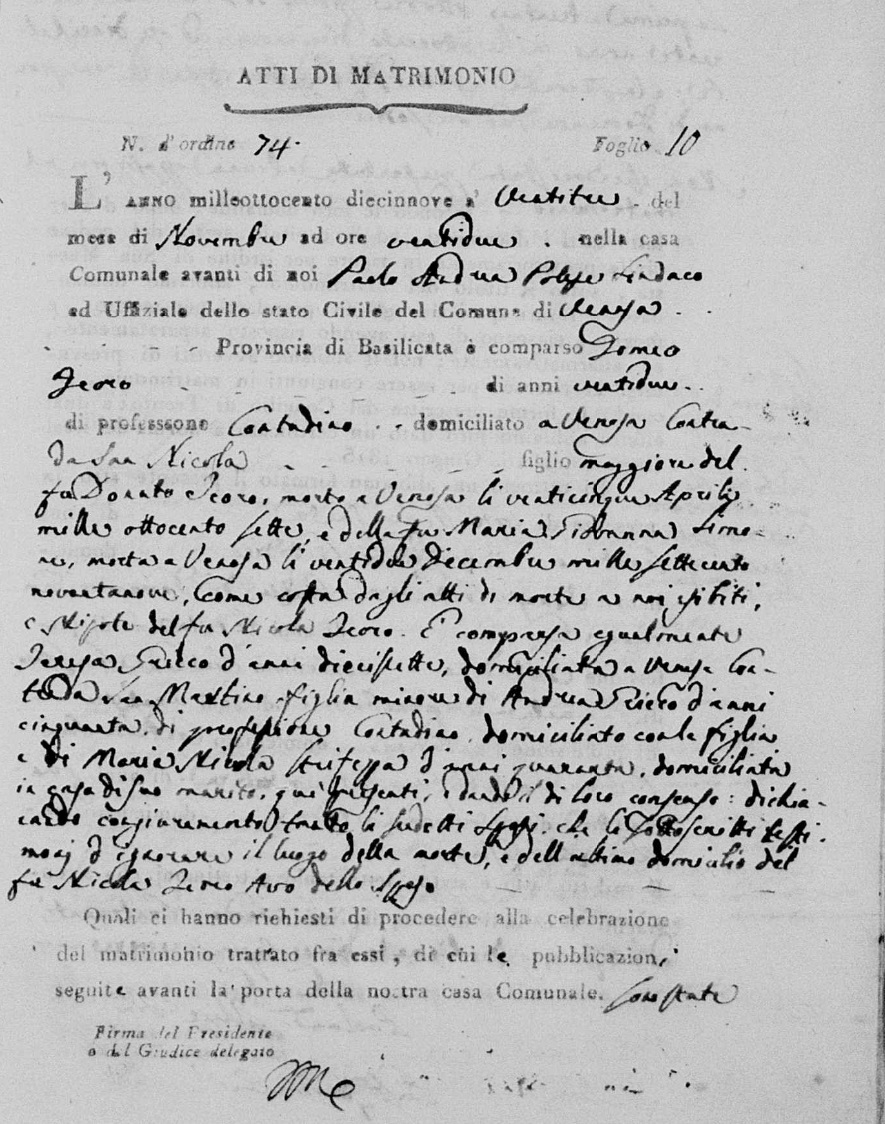 ATTI DI MATRIMONIO
N. d'ordine 74. Foglio 10
L'ANNO milleottocento diecinnove a' Ventitre del
mese di Novembre ad ore ventidue. nella casa
Comunale avanti di noi Paolo Andrea Sindaco
ed Uffiziale dello stato Civile del Comune di Venosa
Provincia di Basilicata è comparso
di anni ventidue
di professone Contadino domiciliato a Venosa Contra-
da San Nicola figlio maggiore del
fu Donato morto a Venosa li venticinque Aprile
mille ottocento sette, e della fu Maria Giovanna Simo-
ne, morta a Venosa li ventidue Decembre mille settecento
novantanove, come costa dagli atti di morte a noi esibiti,
e Nipote del fu Nicola E' comparsa egualmente
Teresa d'anni diecisette, domiciliata a Venosa Con-
trada San Martino figlia minore di Andrea d'anni
cinquanta, di professione Contadino, domiciliato con la figlia
e di Maria Nicola d'anni quaranta, domiciliata
in casa di suo marito, qui presenti, e dando il di loro consenso: dichia-
rando con giuramento tanto li sudetti Sposi, che li sottoscritti testi-
monj d'ignorare il luogo della morte, e dell'ultimo domicilio del
fu Nicola Avo dello Sposo
Quali ci hanno richiesti di procedere alla celebrazione
del matrimonio trattato fra essi, di cui le pubblicazioni
seguite avanti la porta della nostra casa Comunale. sono state
Firma del Presidente
o del Giudice delegato